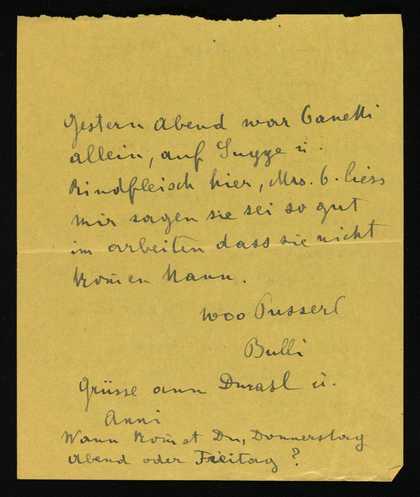 Gestern Abend war Canetti
allein, auf Suppe u.
Rindfleisch hier, Mrs. C. liess
mir sagen sie sei so gut
im arbeiten dass sie nicht
kom̄en kann.
1000 Pusserl
Bulli
Grüsse ann Durasl u.
Anni
Wann kom̄st Du, Donnerstag
abend oder Freitag?